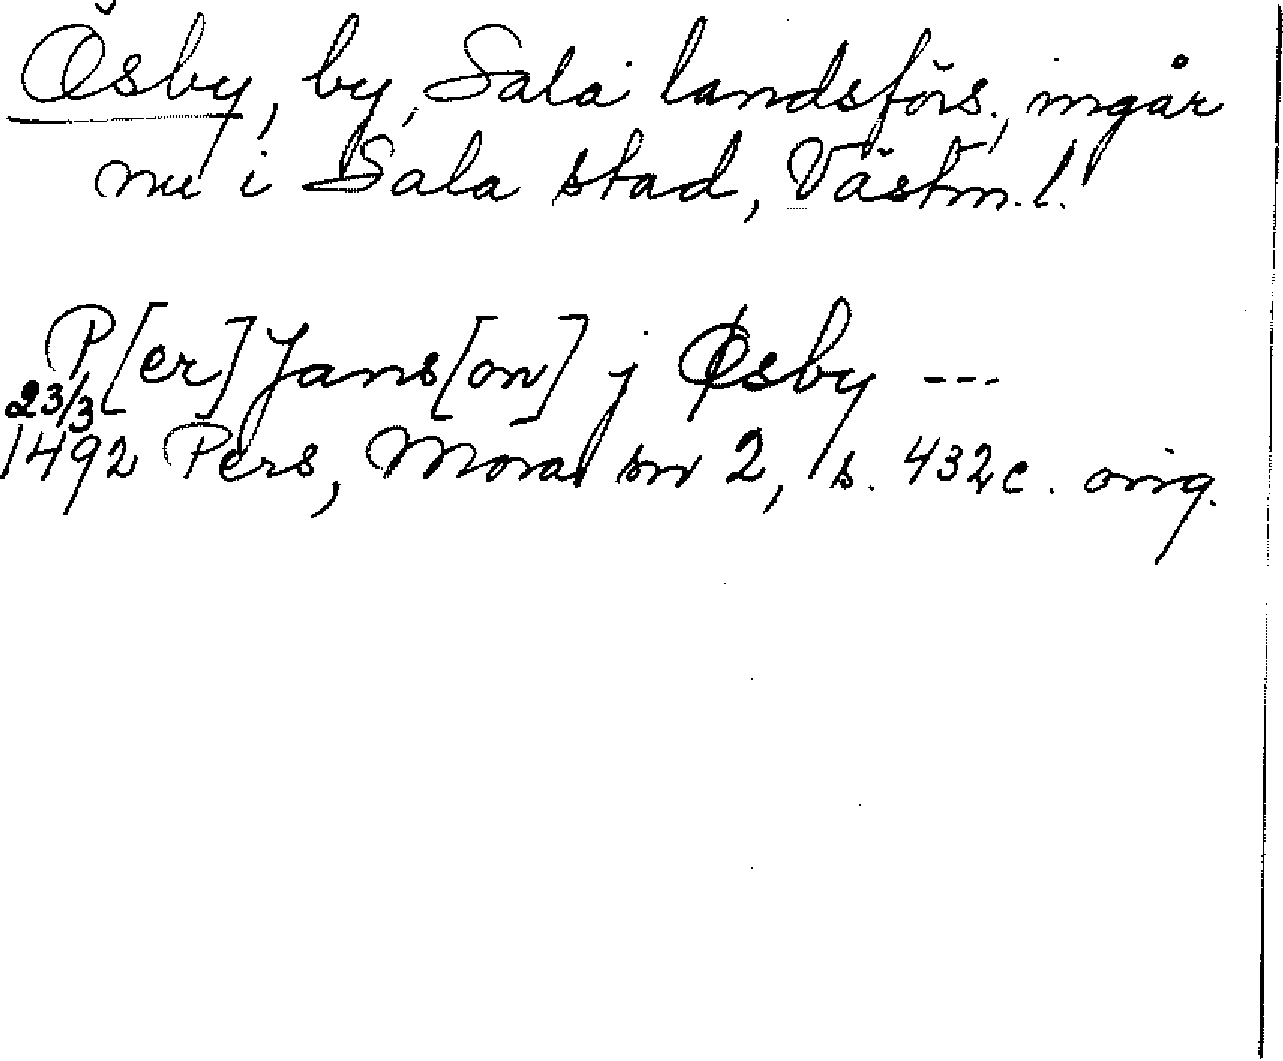 Ösby, by, Sala landsförs., ingår
nu i Sala stad, Västm. l.
P[er] Jans[on] j Øsby ---
23/3
1492 Pers, Mora sn 2, s. 432 c. orig.